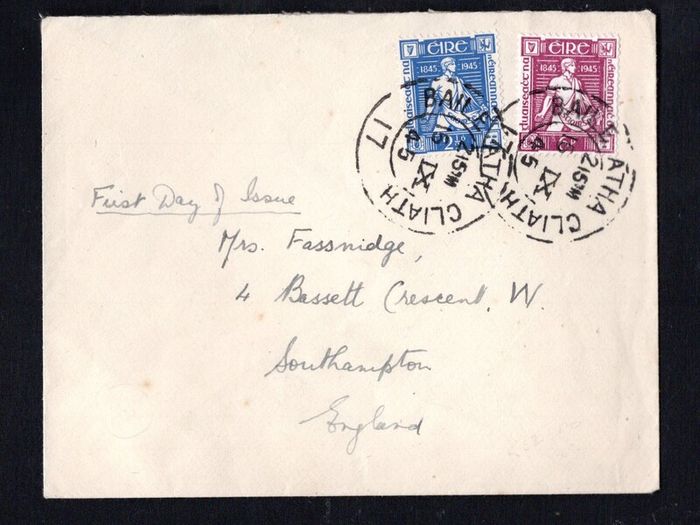 ÉIRE
1845 1945
2½
ÉIRE
1845 1945
BAILE ÁTHA CLIATH
15
IX
45
17
BAILE ÁTHA CLIATH
15
IX
45
First Day of Issue
Mrs. Fassnidge,
4 Bassett Crescent. W.
Southampton
England